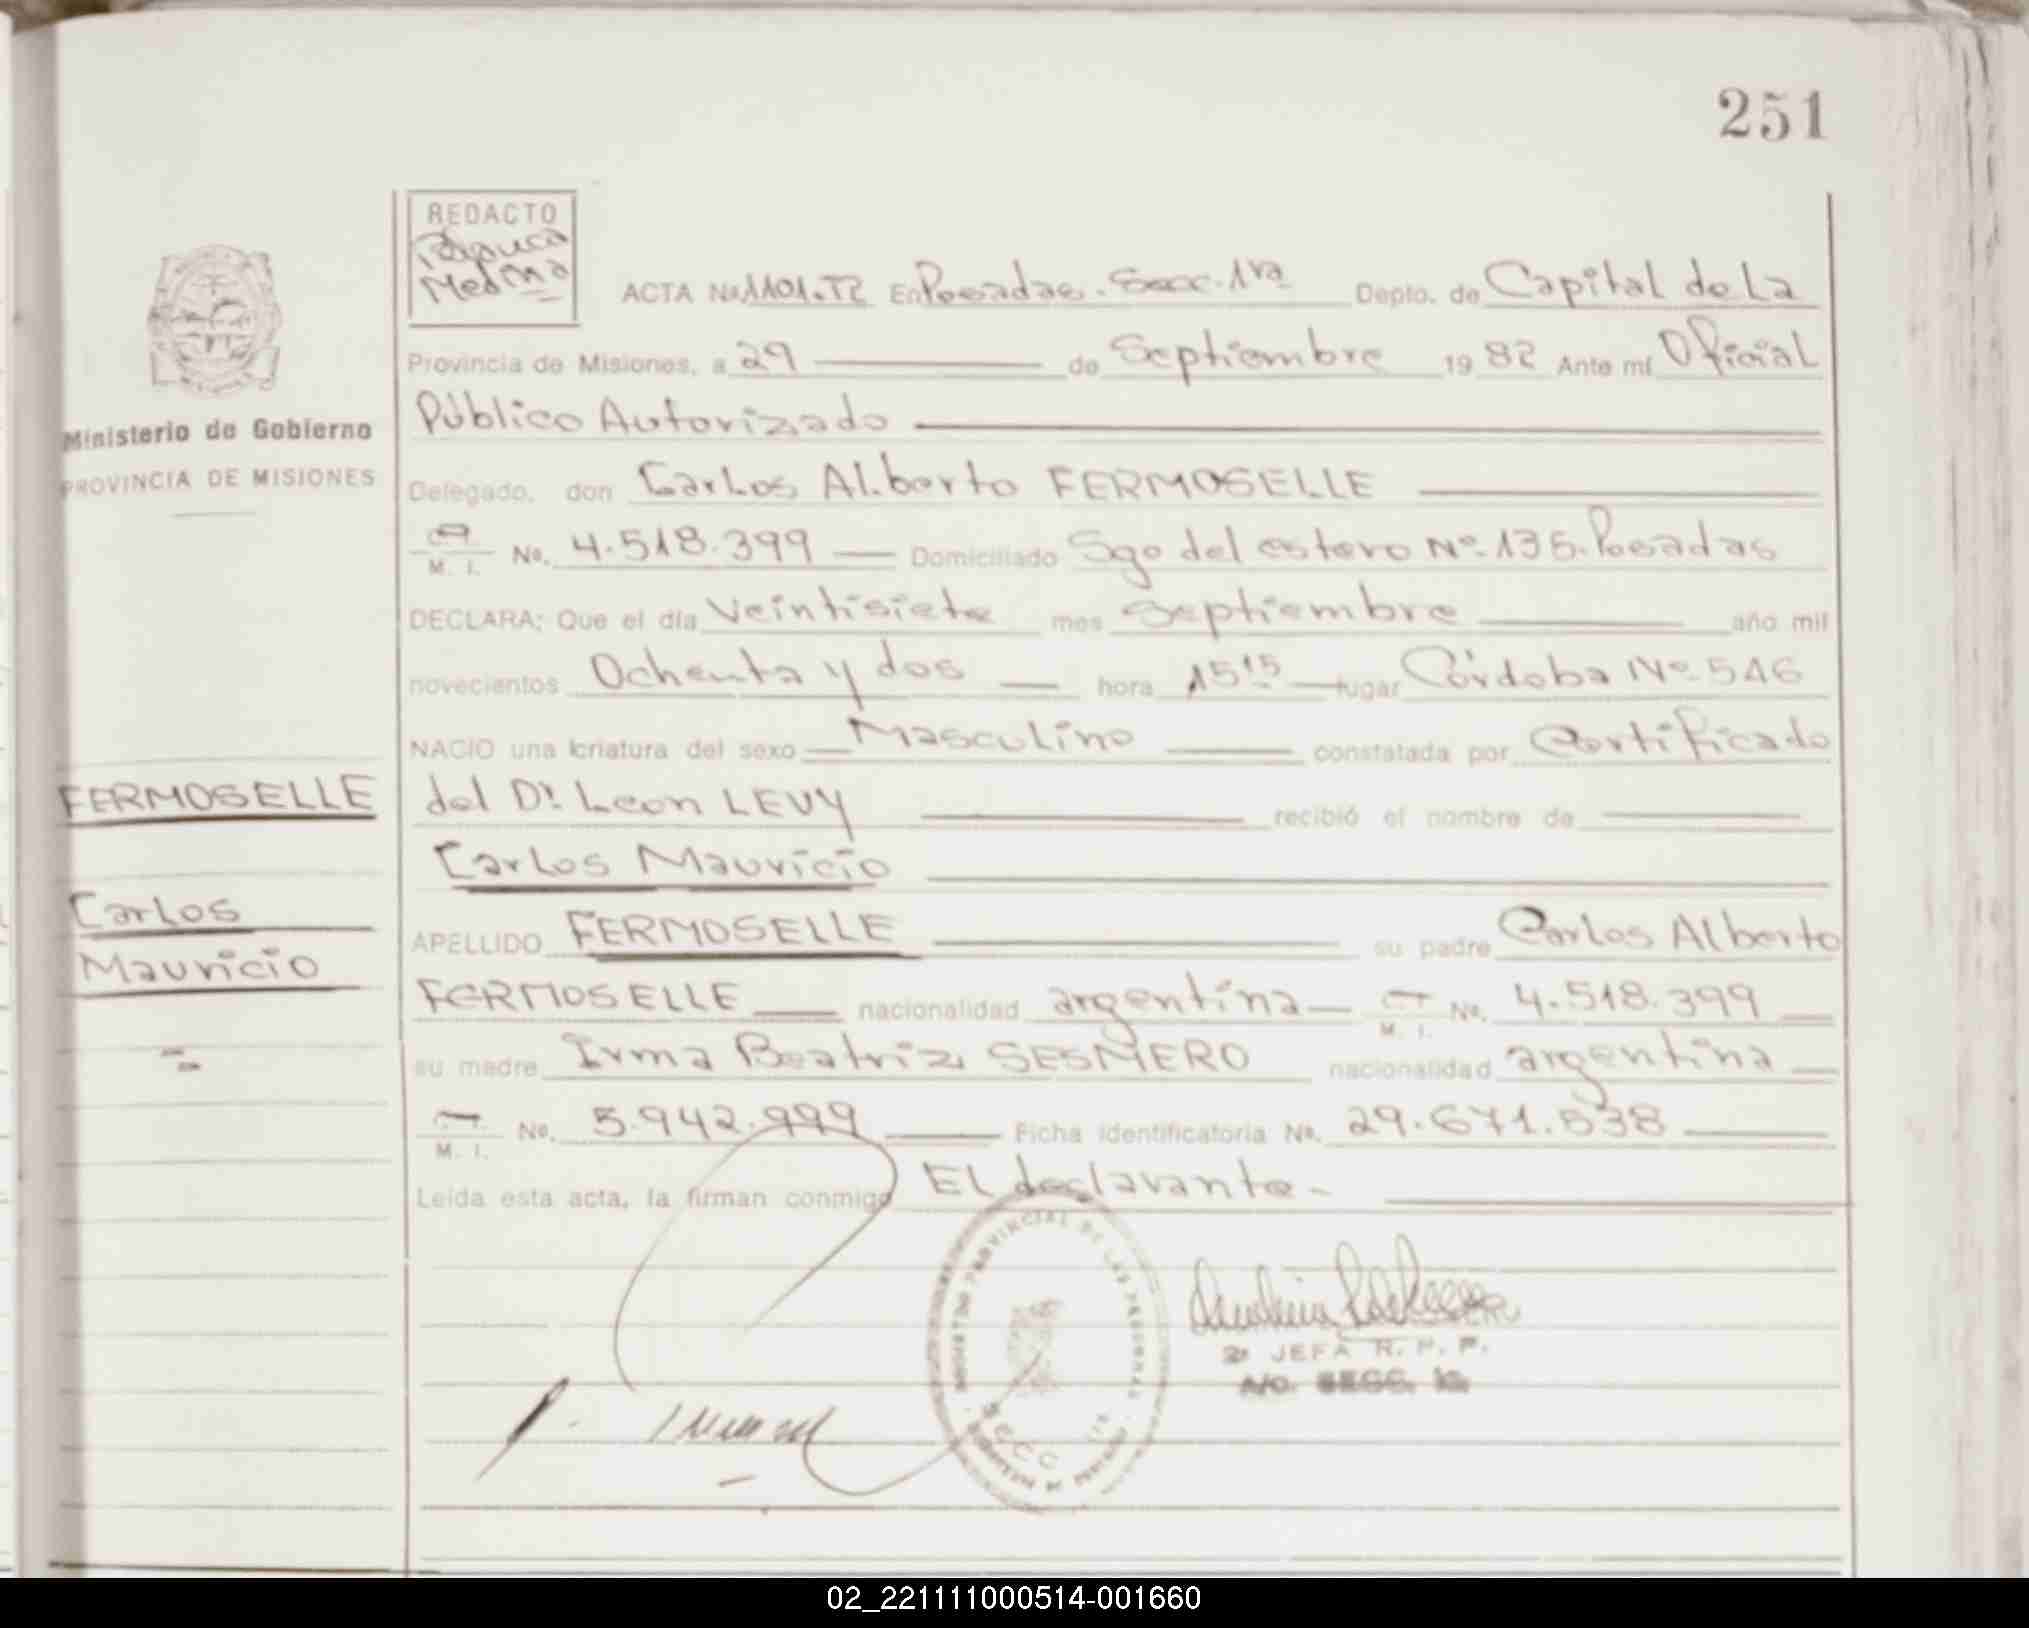 251
REDACTO
Medina
ACTA Nº 1101.T2 En Posadas. Secc. 1ra Depto. de Capital de La
Provincia de Misiones, a 29 de Septiembre 1982 Ante mí Oficial
Público Autorizado
Delegado, don Carlos Alberto FERMOSELLE
M. I. No. 4.518.399 Domiciliado Sgo del estero Nº 135. Posadas
DECLARA: Que el día Veintisiete mes Septiembre año mil
novecientos Ochenta y dos hora 15 15 lugar Córdoba Nº 546
NACIO una criatura del sexo Masculino constatada por Certificado
del Dr. Leon LEVY recibió el nombre de
Carlos Mauricio
APELLIDO FERMOSELLE su padre Carlos Alberto
FERMOSELLE nacionalidad argentina M. I. No. 4.518.399
su madre Irma Beatriz SESMERO nacionalidad argentina
M. I. No. 5.942.999 Ficha identificatoria No. 29.671.538
Leída esta acta, la firman conmigo El declarante.-
Ministerio de Gobierno
PROVINCIA DE MISIONES
FERMOSELLE
Carlos
Mauricio
PROVINCIAL DE LAS PERSONAS
2ª JEFA R. P. P.
A/C. SECC. 1a.
02_221111000514-001660